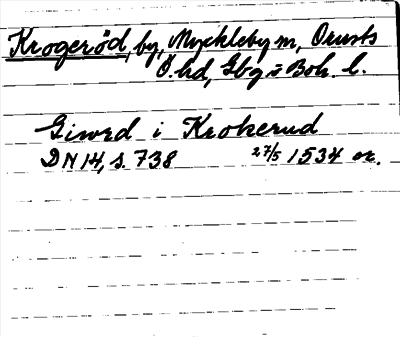 Krogeröd, by, Myckleby sn, Orusts
Ö. hd, Gbg o Boh. l.
Giword i Krokerud
DN 14, s. 738 27/5 1534 or.